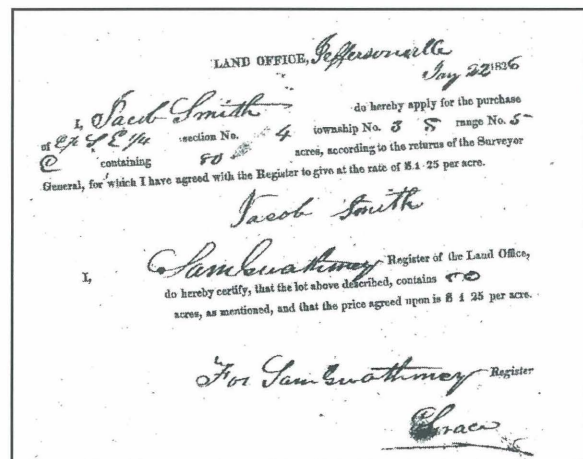 LAND OFFICE, Jeffersonville
Jay 22 1836
I, Jacob Smith do hereby apply for the purchase
of E½ S E 1/4 section No. 4 township No. 3 S range No. 5
E containing 80 acres, according to the returns of the Surveyor
General, for which I have agreed with the Register to give at the rate of $ 1 25 per acre.
Jacob Smith
I, Sam Gwathmey Register of the Land Office,
do hereby certify, that the lot above described, contains 80
acres, as mentioned, and that the price agreed upon is $ 1 25 per acre.
For Sam Gwathmey Register